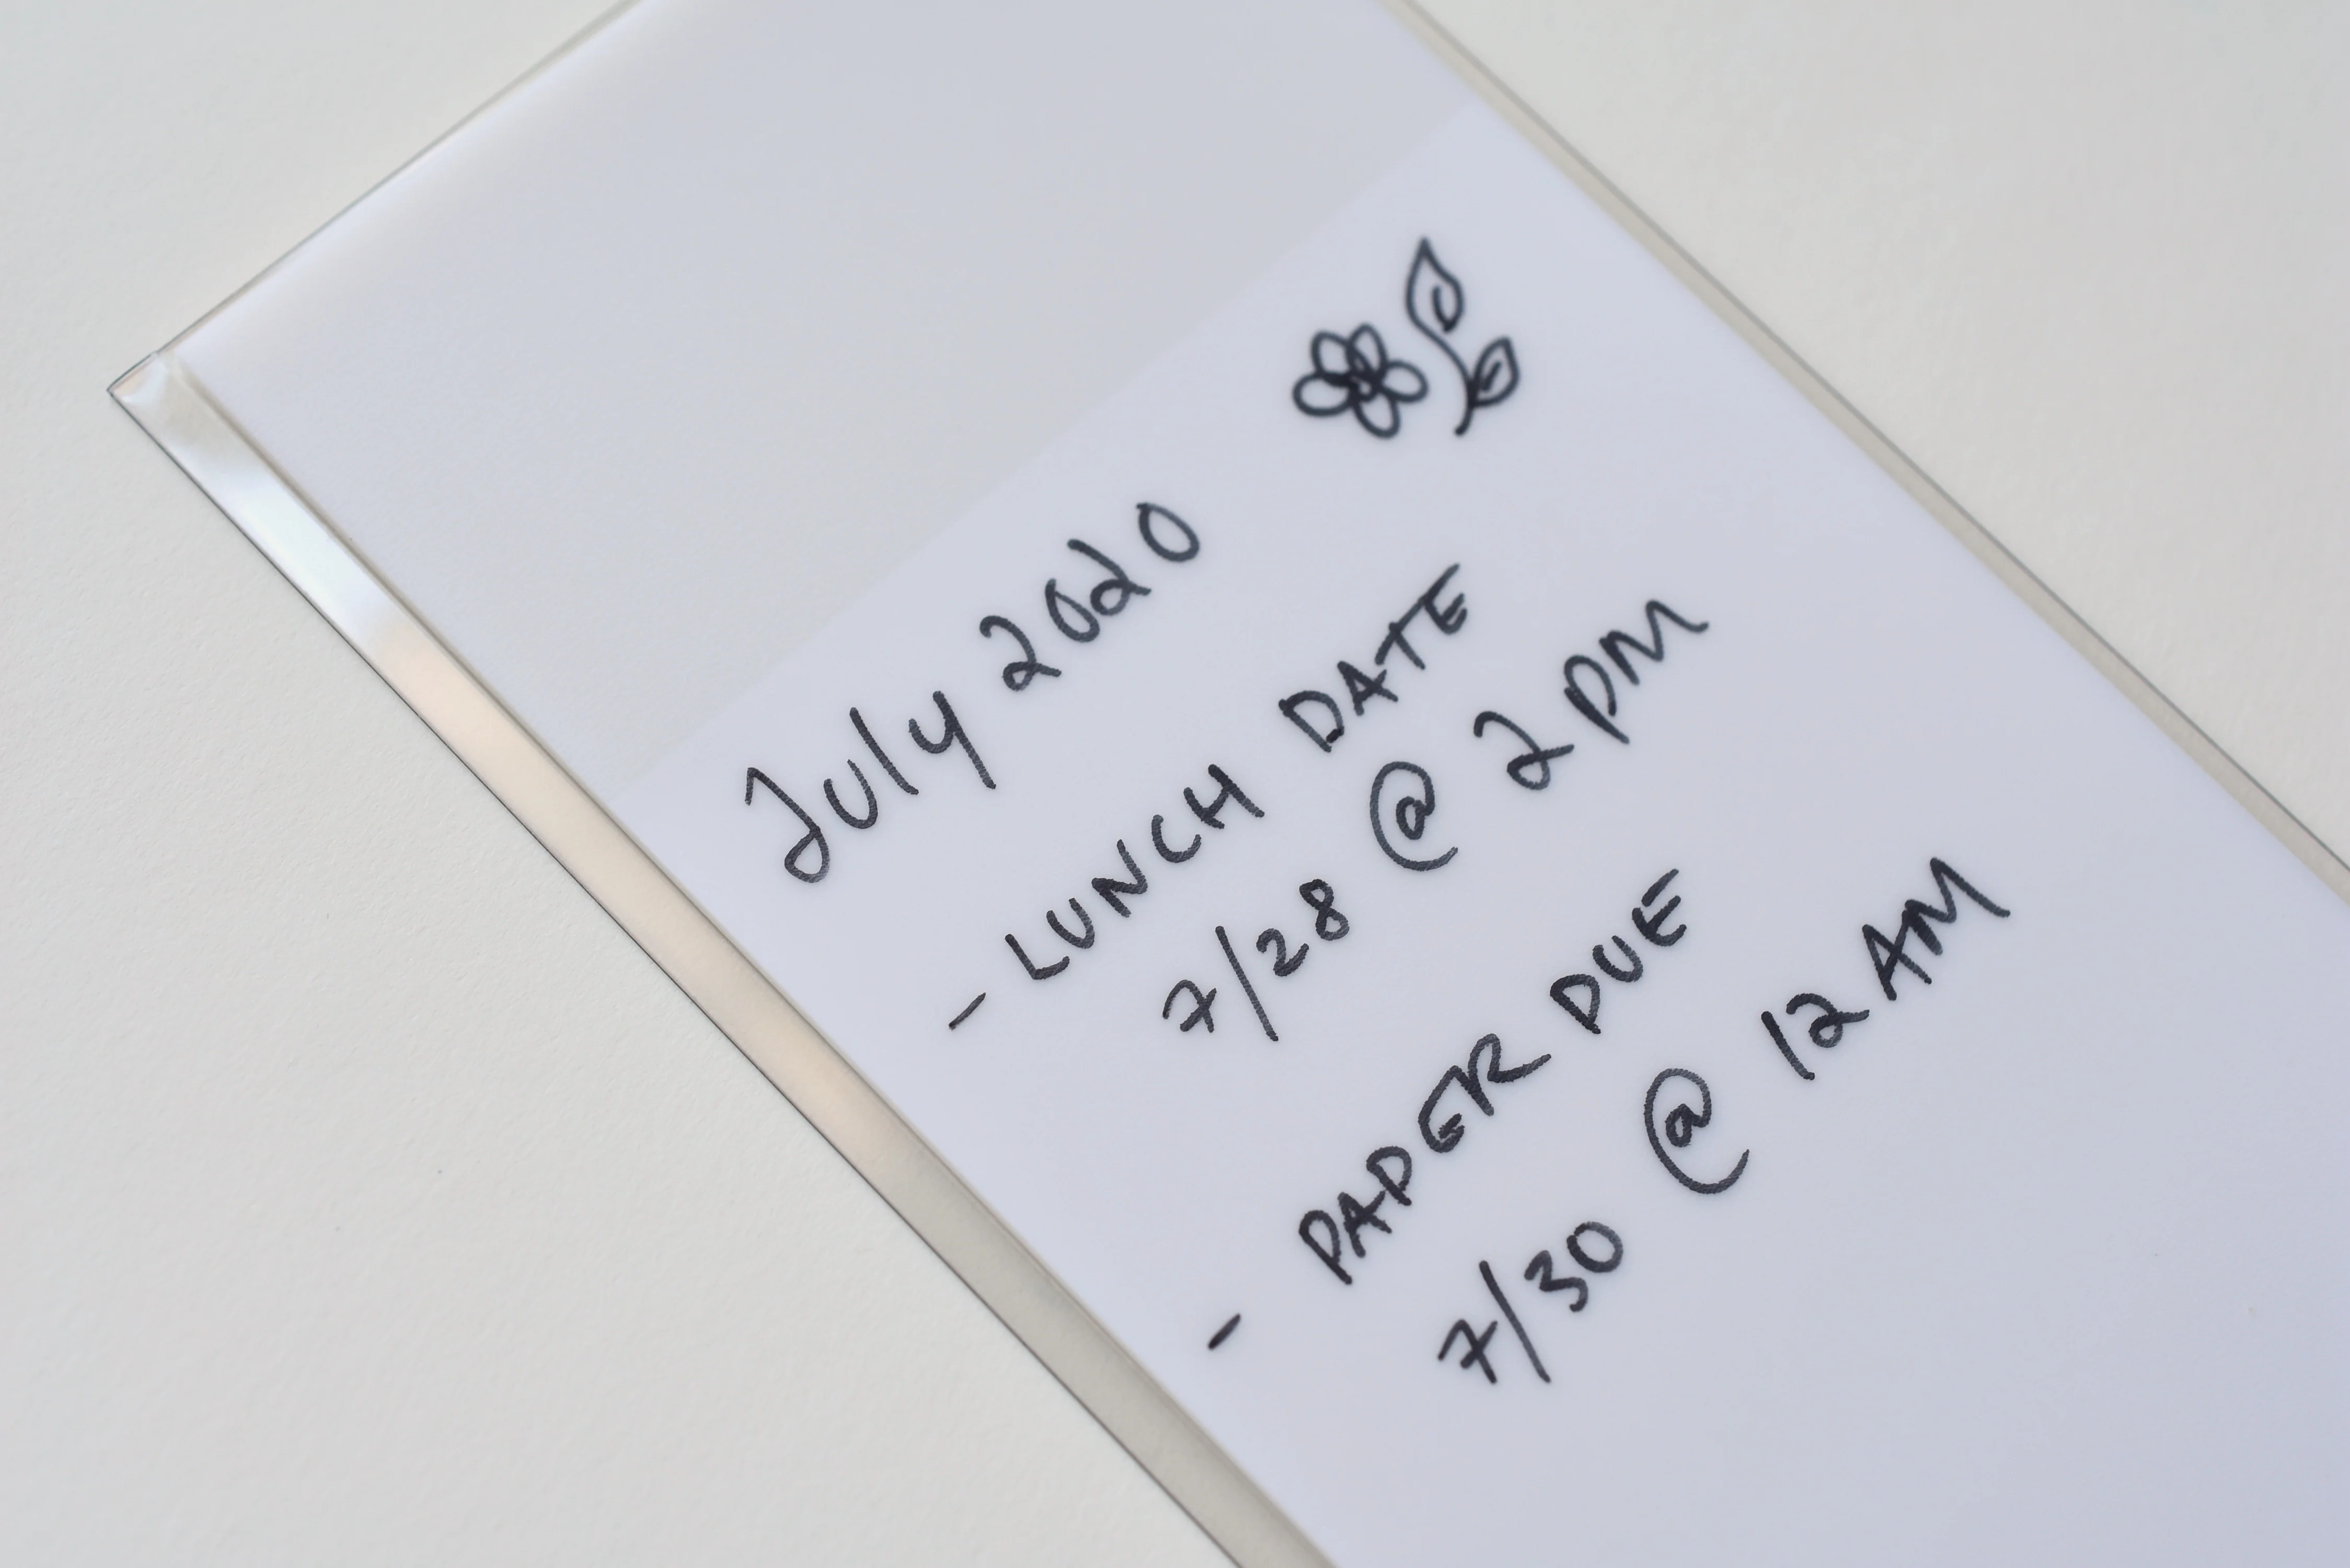 July 2020
- LUNCH DATE
7/28 @ 2 PM
- PAPER DUE
7/30 @ 12 AM